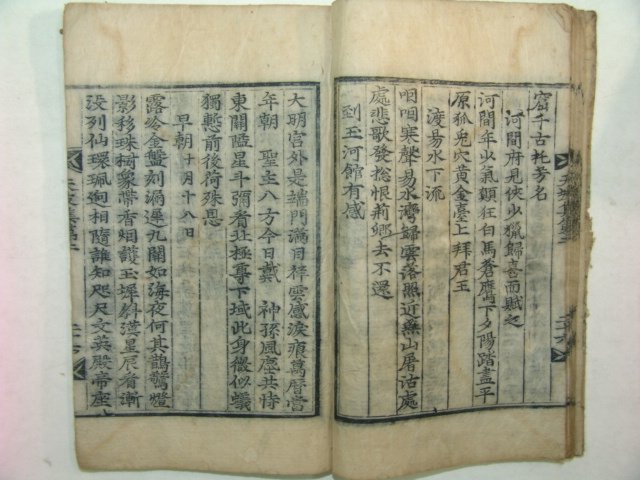 窟千古托芳名
河間府見俠少獵歸喜而賦之
河間年少氣顚狂白馬蒼鷹下夕陽踏盡平
原狐兎穴黃金臺上拜君王
渡易水下流
咽咽寒聲易水灣歸雲落照近燕山屠沽處
處悲歌發怊恨荊卿去不還
到玉河館有感
大明宮外是端門滿目祥雲感淚痕萬曆當
年朝 聖主八方今日戴 神孫風塵共恃
東關隘星斗彌看北極尊下域此身微似蟻
獨慙前後荷殊恩
早朝十月十八日
露冷金盤刻漏遲九關如海夜何其鵲驚燈
影移珠樹象帶香烟護玉墀斜漢星辰看漸
沒列仙環珮逈相隨誰知咫尺文英殿帝座